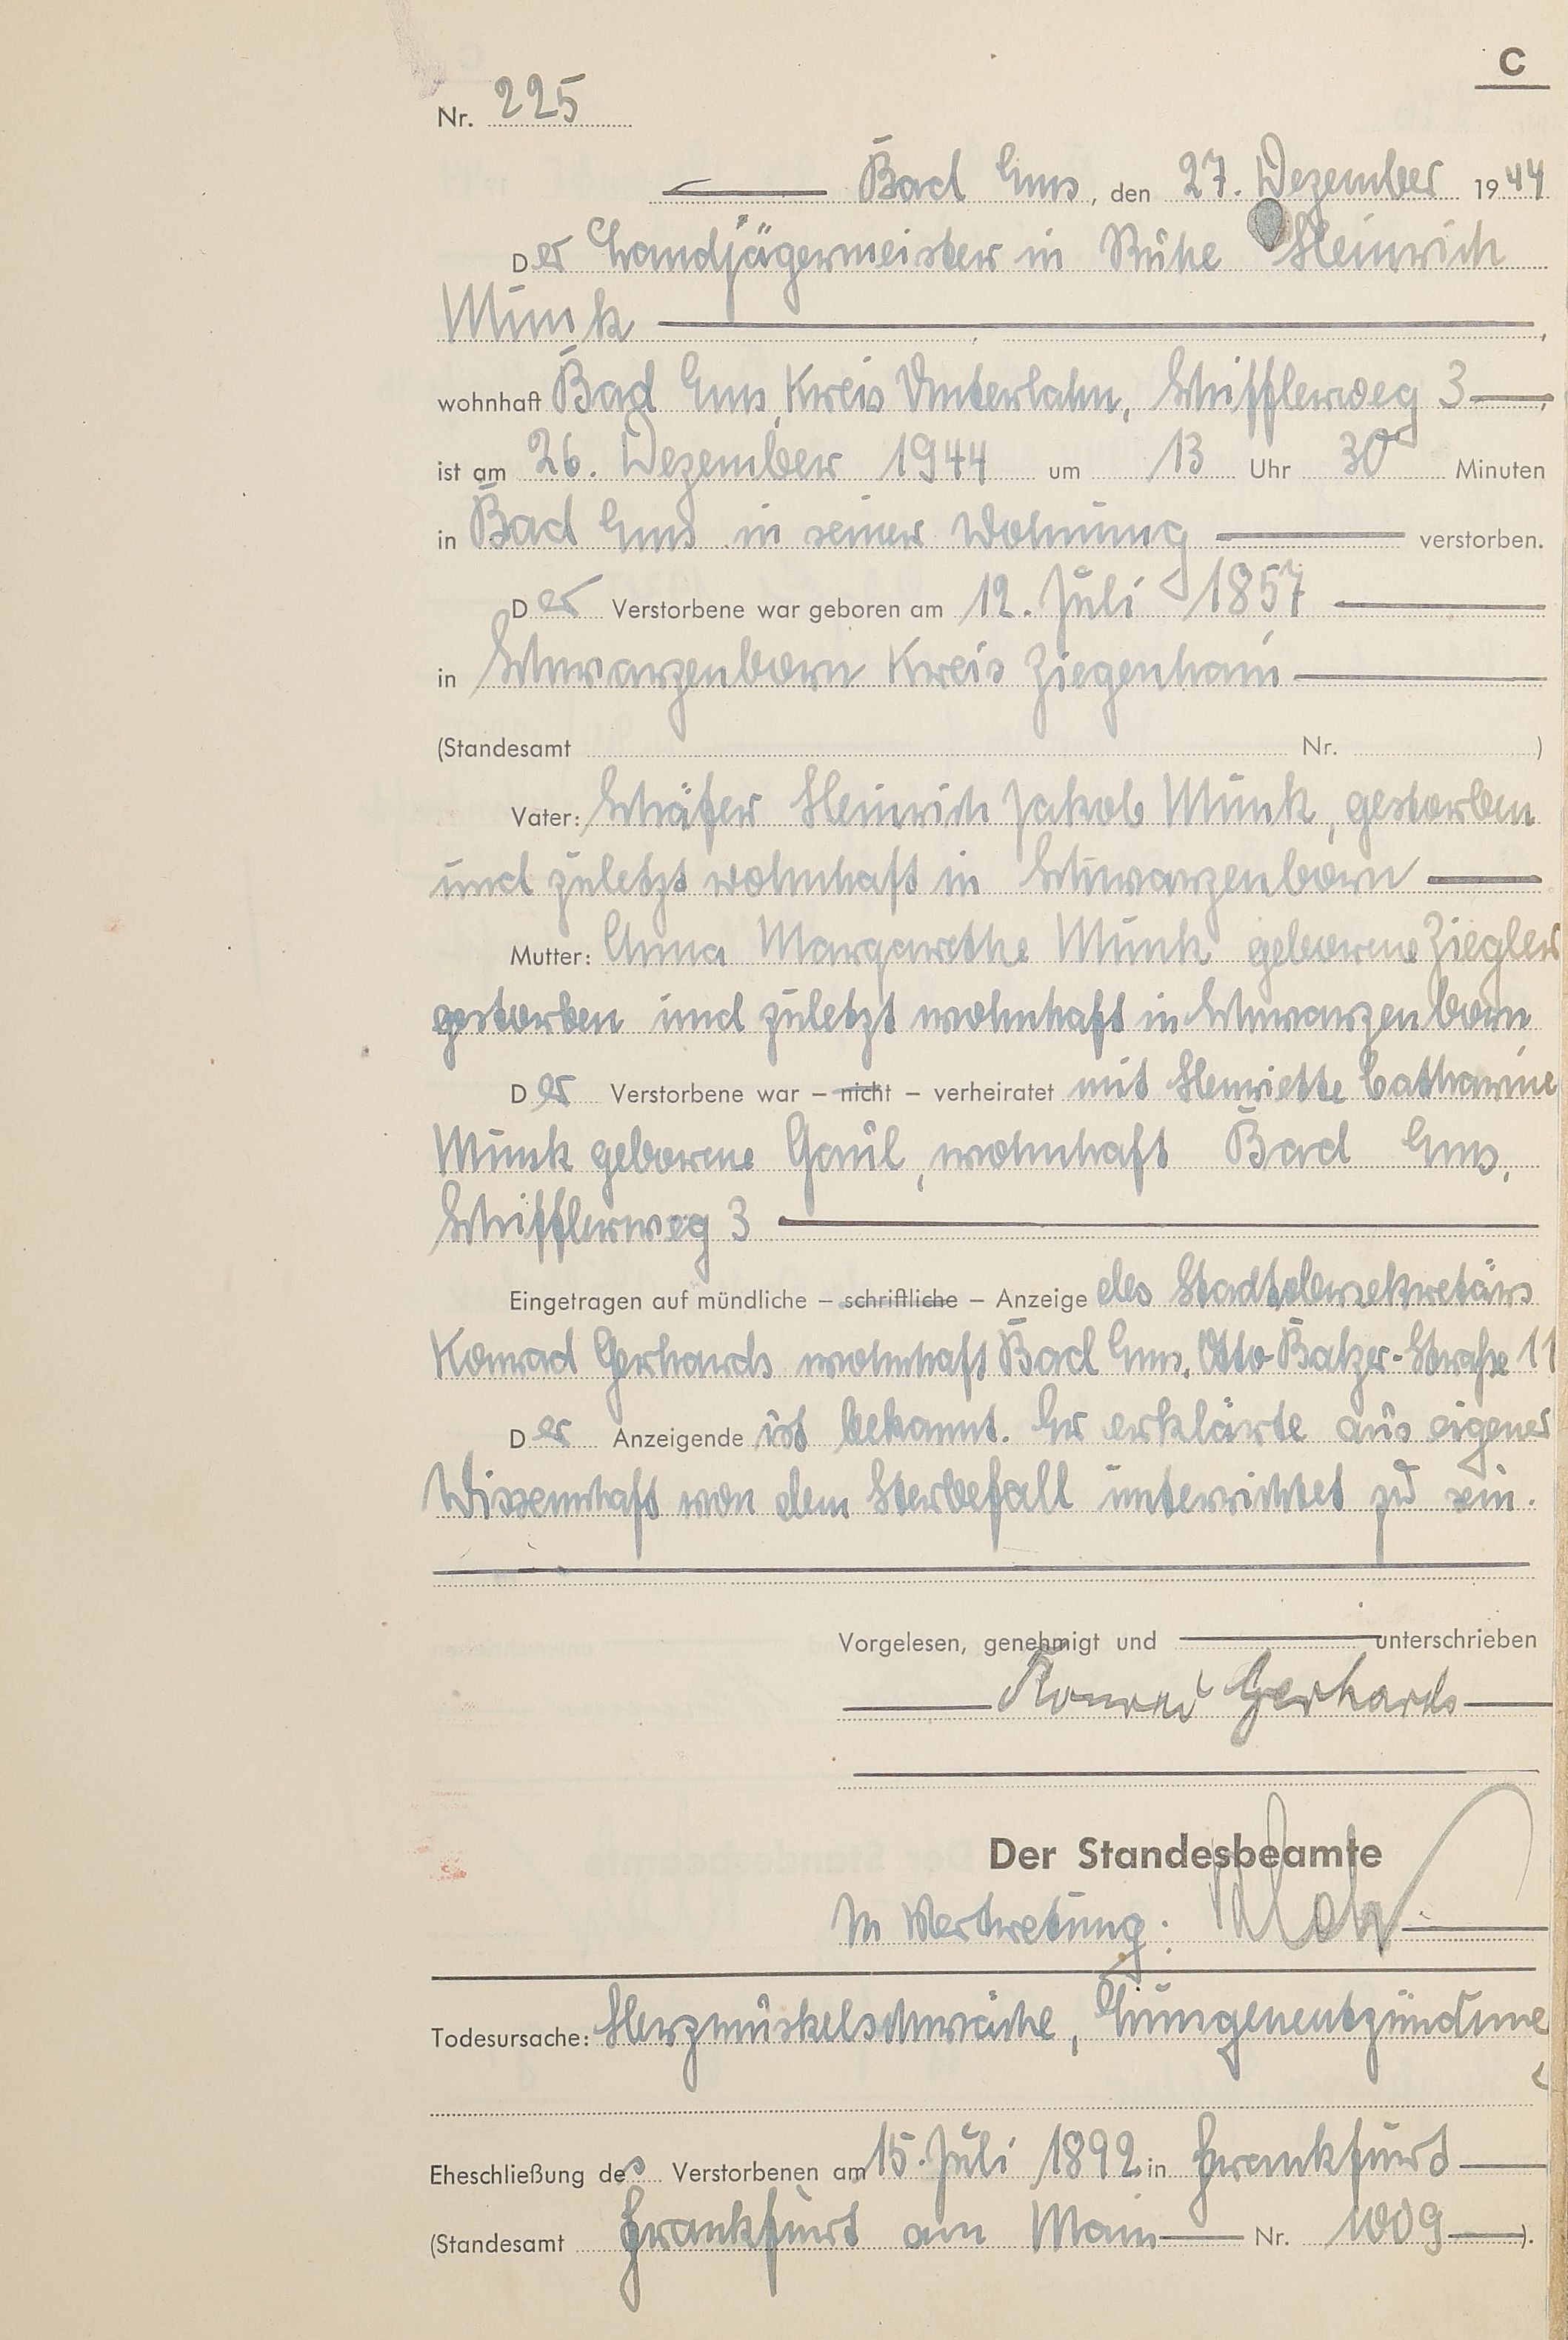 C
Nr. 225
Bad Ems, den 27. Dezember 1944
Der Landjägermeister in Ruhe Heinrich
Munk,
wohnhaft Bad Ems, Kreis Unterlahn, Schifflerweg 3,
ist am 26. Dezember 1944 um 13 Uhr 30 Minuten
in Bad Ems in seiner Wohnung verstorben.
Der Verstorbene war geboren am 12. Juli 1857
in Schwarzenborn Kreis Ziegenhain
(Standesamt Nr. )
Vater: Schäfer Heinrich Jakob Munk, gestorben
und zuletzt wohnhaft in Schwarzenborn
Mutter: Anna Margarethe Munk geborene Ziegler
gestorben und zuletzt wohnhaft in Schwarzenborn
Der Verstorbene war – nicht – verheiratet mit Henriette Catharine
Munk geborene Gaul, wohnhaft Bad Ems,
Schifflerweg 3
Eingetragen auf mündliche – schriftliche – Anzeige des Stadtobersekretärs
Konrad Gerhards wohnhaft Bad Ems, Otto-Balzer-Straße 11
Der Anzeigende ist bekannt. Er erklärte aus eigener
Wissenschaft von dem Sterbefall unterrichtet zu sein.
Vorgelesen, genehmigt und unterschrieben
Konrad Gerhards
Der Standesbeamte
In Vertretung:
Todesursache: Herzmuskelschwäche, Lungenentzündung
Eheschließung des Verstorbenen am 15. Juli 1892 in Frankfurt
(Standesamt Frankfurt am Main Nr. 1009).